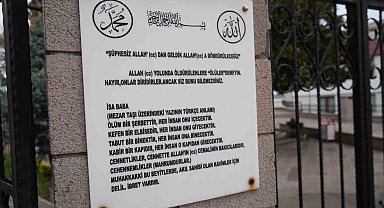 محمد
بسم الله الرحمن الرحيم
الله
"ŞÜPHESİZ ALLAH'(cc) DAN GELDİK ALLAH'(cc) A DÖNDÜRÜLECEĞİZ"
ALLAH (cc) YOLUNDA ÖLDÜRÜLENLERE "ÖLÜLER"DEMEYİN.
HAYIR,ONLAR DİRİDİRLER.ANCAK SİZ BUNU BİLMEZSİNİZ.
İSA BABA
(MEZAR TAŞI ÜZERİNDEKİ YAZININ TÜRKÇE ANLAMI)
ÖLÜM BİR ŞERBETTİR, HER İNSAN ONU İÇECEKTİR.
KEFEN BİR ELBİSEDİR, HER İNSAN ONU GİYECEKTİR.
TABUT BİR BİNEKTİR, HER İNSAN ONA BİNECEKTİR.
KABİR BİR KAPIDIR, HER İNSAN O KAPIDAN GİRECEKTİR.
CENNETLİKLER, CENNETTE ALLAH'IN (cc) CEMALİNİN BAKICILARIDIR.
CEHENNEMLİKLER (MAHRUMDURLAR.)
MUHAKKAKKİ BU BEYİTLERDE, AKIL SAHİBİ OLAN KAVİMLER İÇİN
DELİL. İBRET VARDIR.